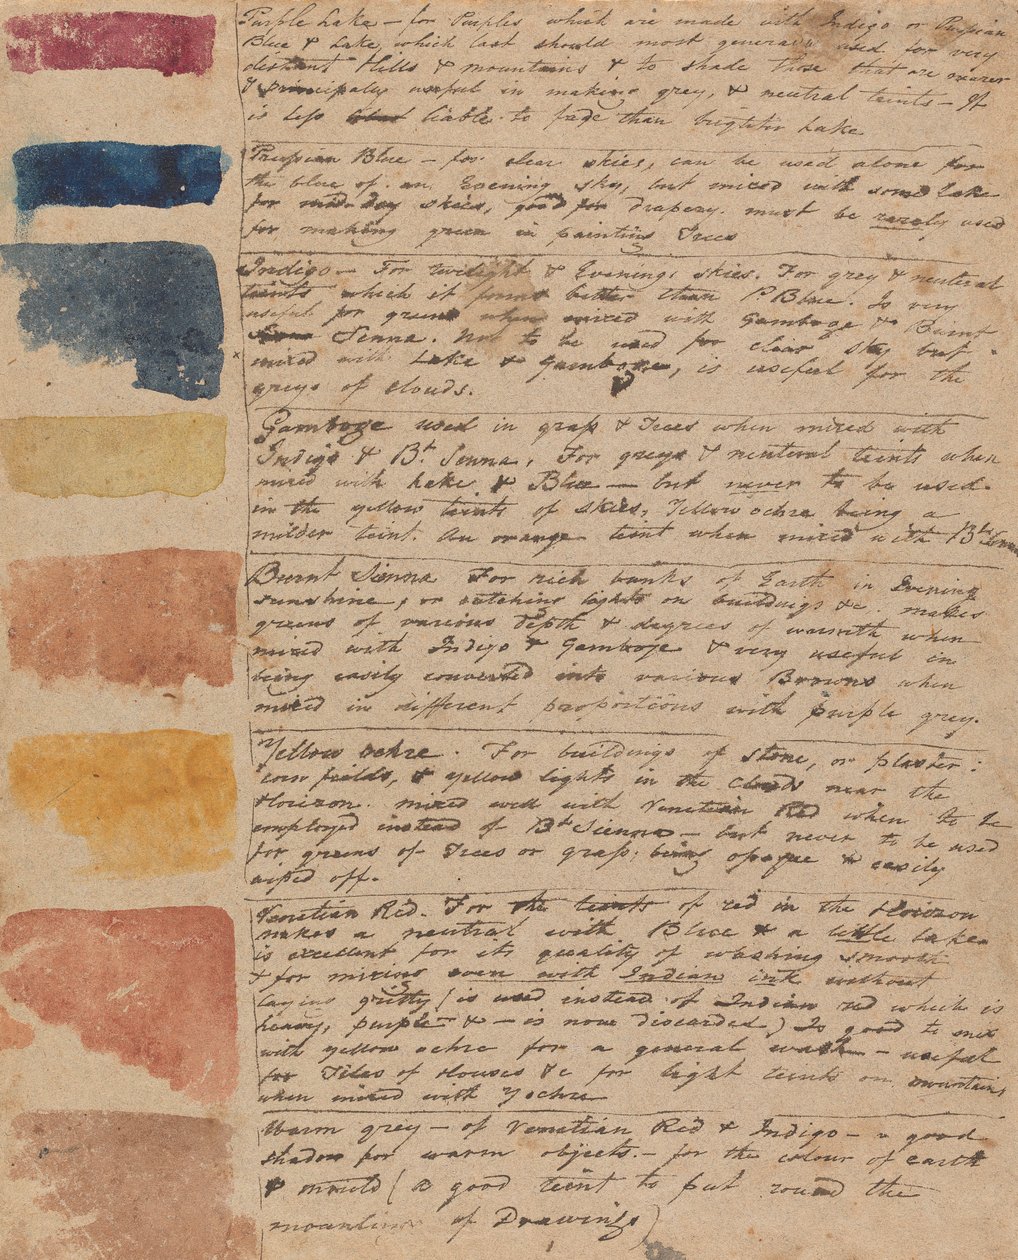 Purple Lake – for Purples which are made with Indigo or Prussian
Blue & Lake, which last should most generally used for very
distant Hills & mountains & to shade those that are nearer
& principally useful in making grey, & neutral teints – It
is less liable to fade than brighter Lake
Prussian Blue – for clear skies, can be used alone for
the blue of an Evening sky, but mixed with some Lake
for mid-day skies, good for drapery. must be rarely used
for making green in painting Trees
Indigo – For twilight & Evening skies. For grey & neutral
teints which it forms better than P Blue. Is very
useful for greens when mixed with Gamboge & Burnt
Senna. Not to be used for clear sky but
mixed with Lake & Gamboge, is useful for the
greys of clouds.
Gamboge used in grass & Trees when mixed with
Indigo & Bt Senna. For greys & neuteral teints when
mixed with Lake & Blue – but never to be used
in the yellow teints of skies, Yellow ochre being a
milder teint. An orange teint when mixed with Bt Senna
Burnt Sienna For rich banks of Earth in Evening
sunshine, or catching lights on buildings &c. makes
greens of various depth & degrees of warmth when
mixed with Indigo & Gamboge & very useful in
being easily converted into various Browns when
mixed in different proportions with purple grey.
Yellow ochre. For buildings of stone, or plaster:
corn fields, & yellow lights in the clouds near the
Horizon. mixed well with Venetian Red when to be
employed instead of Bt Sienna – but never to be used
for greens of Trees or grass, being opaque & easily
wiped off.
Venetian Red. For the teints of red in the Horizon
makes a neutral with Blue & a little Lake
is excellent for its quality of washing smooth
& for mixing even with Indian ink without
laying gritty (is used instead of Indian red which is
heavy, purple & – is now discarded) Is good to mix
with yellow ochre for a general wash – useful
for Tiles of Houses &c for light teints on mountains
when mixed with Y ochre
Warm grey – of Venetian Red & Indigo – a good
shadow for warm objects. – for the colour of earth
& mould (a good teint to put round the
mountings of Drawings)